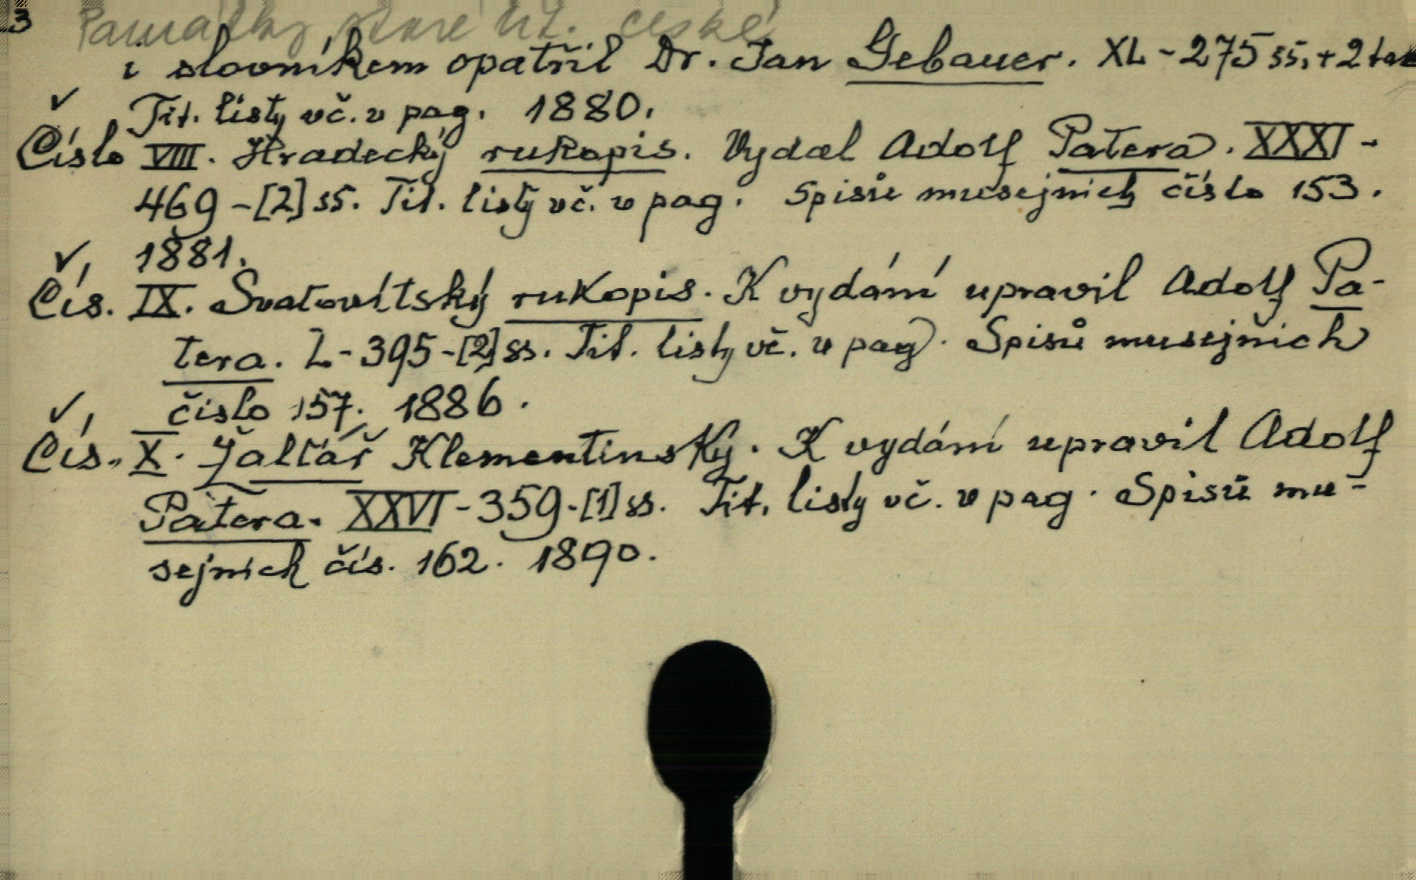 3 Památky staré lit. české
i slovníkem opatřil Dr. Jan Gebauer. XL-275 ss. + 2 tab
Tit. listy vč. v pag. 1880.
Číslo VIII. Hradecký rukopis. Vydal Adolf Patera. XXXI-
469-[2] ss. Tit. listy vč. v pag. Spisů musejních číslo 153.
1881.
Čís. IX. Svatovítský rukopis. K vydání upravil Adolf Pa-
tera. L-395-[2] ss. Tit. listy vč. v pag. Spisů musejních
číslo 157. 1886.
Čís. X. Žaltář Klementinský. K vydání upravil Adolf
Patera. XXVI-359-[1] ss. Tit. listy vč. v pag. Spisů mu-
sejních čís. 162. 1890.